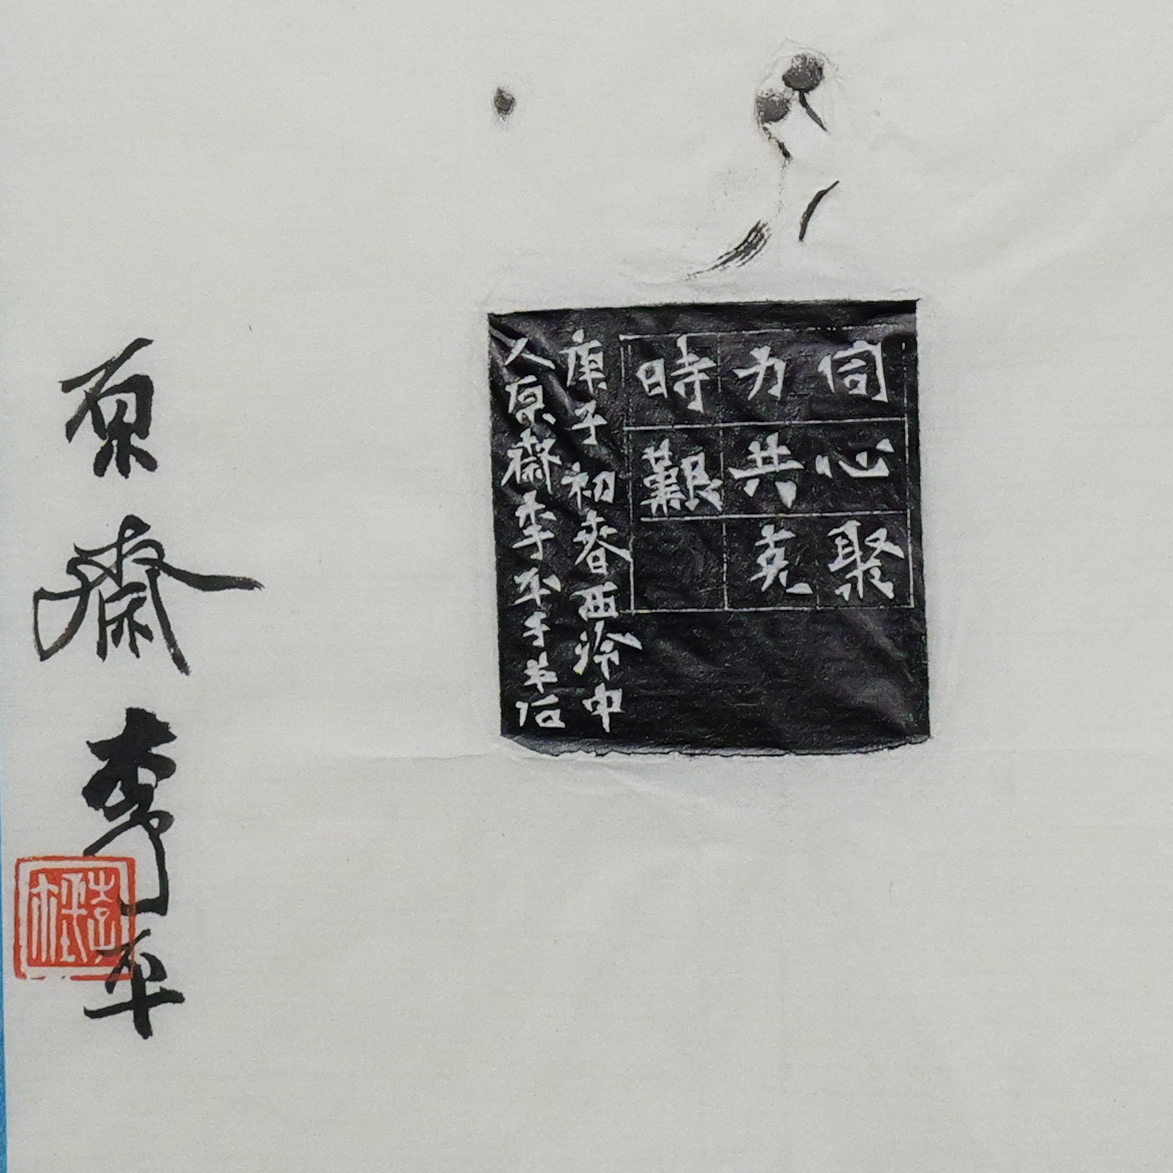 同心聚
力共克
時艱
庚子初春西泠中
人原齋李平于羊
原齋李平